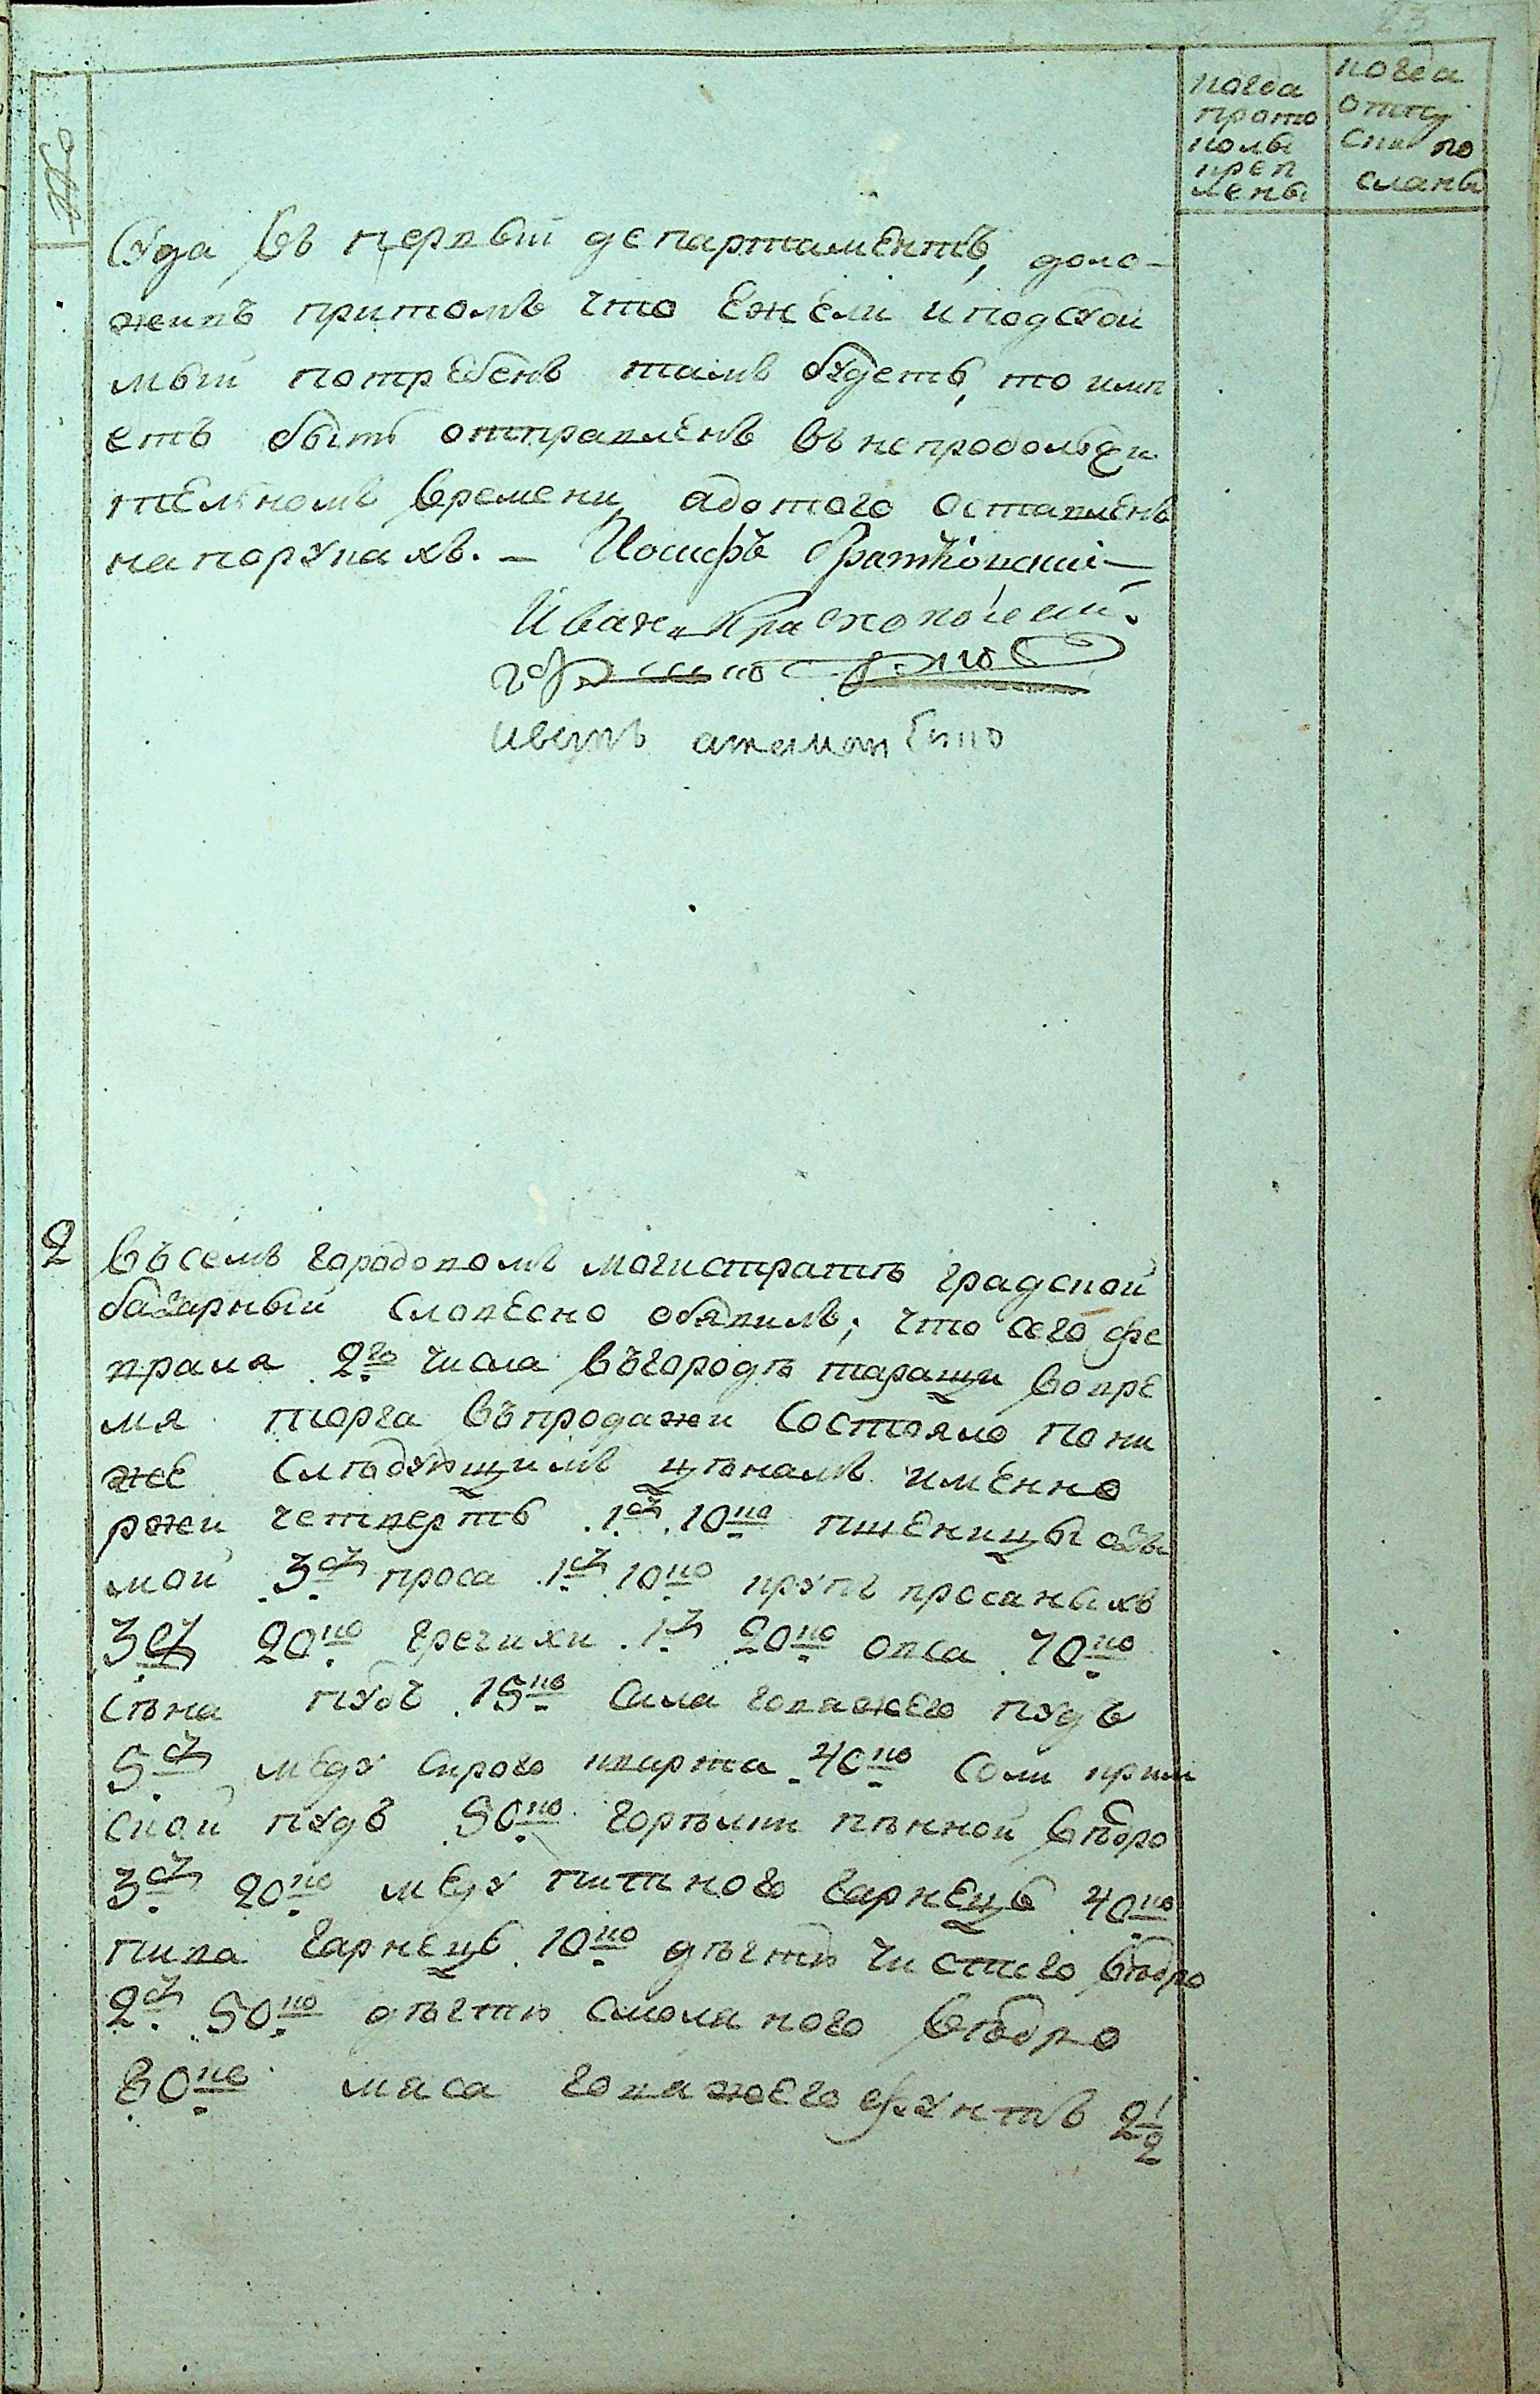 23
№
когда
прото
колы
креп
лены
когда
отпу
ски по
сланы
Суда въ первый департаментъ, доло-
живъ притомъ что ежели и подсудй
мый потребенъ тамъ будетъ, то имѣ
етъ быть отправленъ въ непродолжи
тельномъ времени, а до того оставленъ
на порукахъ. — Иосифъ
Иванъ
2 Въ семъ городовомъ магистратѣ градской
базарный словесно обявилъ; что сего фе
враля 2го числа въ городѣ таращи во вре
мя торга въ продажи состояло по ни
же слѣдующимъ цѣнамъ именно
ржи четверть 1 р. 10 ко пшеницы ози
мой 3 р. проса 1 р. 10 ко крупъ просаныхъ
3 р. 20 ко гречихи 1 р. 20 ко овса 70 ко
сѣна пудъ 15 ко сала говяжего пудъ
5 р. меду сырого кварта 40 ко соли крим
ской пудъ 50 ко горѣлки пѣнной вѣдро
3 р. 20 ко меду питного гарнецъ 40 ко
пива гарнецъ 10 ко дѣгтю чистого вѣдро
2 р. 50 ко дѣгтю смоляного вѣдро
80 ко мяса говяжего фунтъ 2 1/2